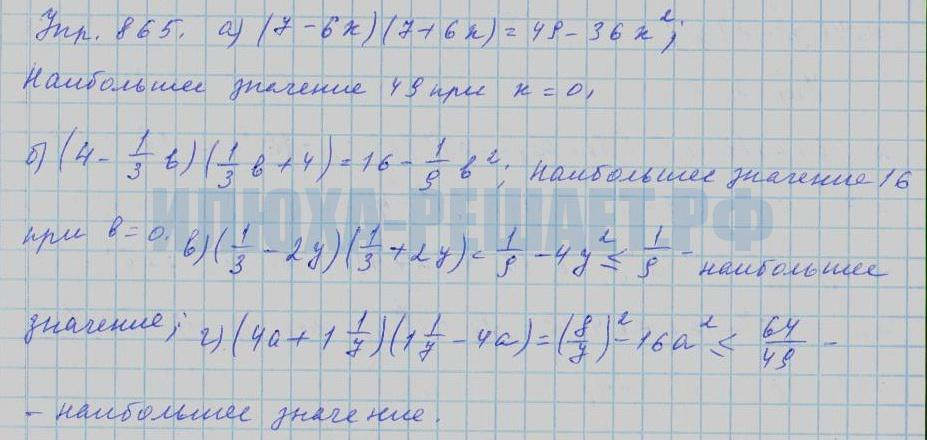 Упр. 865. а) (7 - 6x)(7 + 6x) = 49 - 36x²;
Наибольшее значение 49 при x = 0,
б) (4 - 1/3 b)(1/3 b + 4) = 16 - 1/9 b²; наибольшее значение 16
ИЛЮХА-РЕШАЕТ.РФ
при b = 0. в) (1/3 - 2y)(1/3 + 2y) = 1/9 - 4y² ≤ 1/9 - наибольшее
значение; г) (4a + 1 1/7)(1 1/7 - 4a) = (8/7)² - 16a² ≤ 64/49 -
- наибольшее значение.